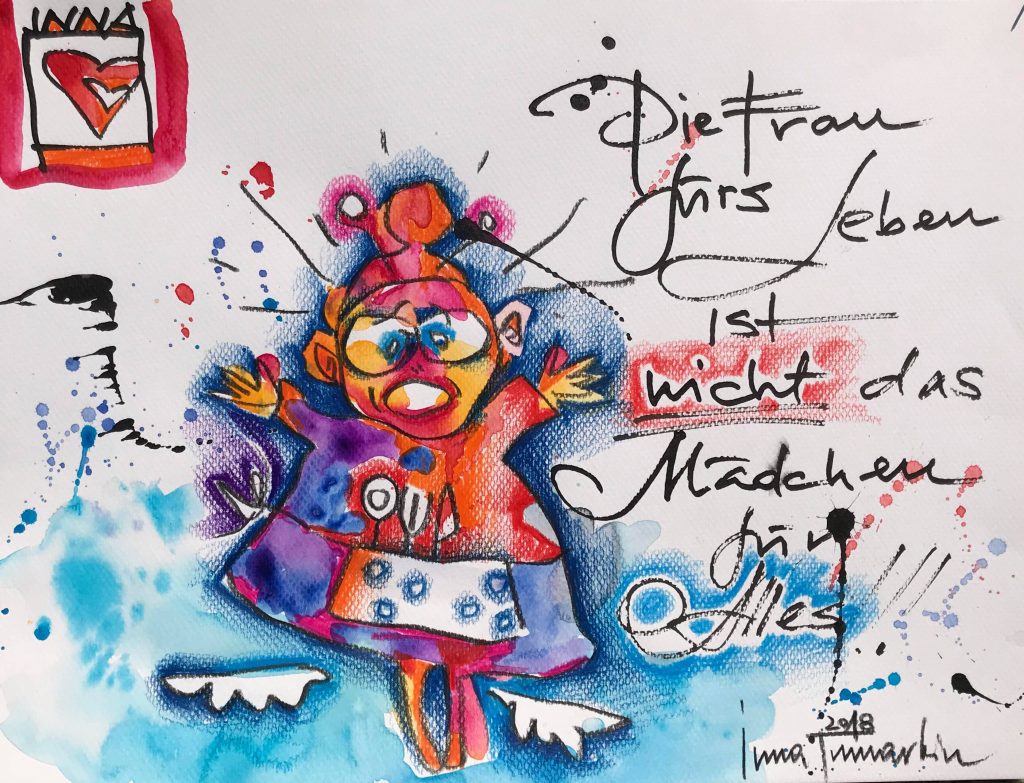 INNA
Die Frau
fürs Leben
ist
nicht das
Mädchen
für
Alles!!!
2018
Inna Tumarkin